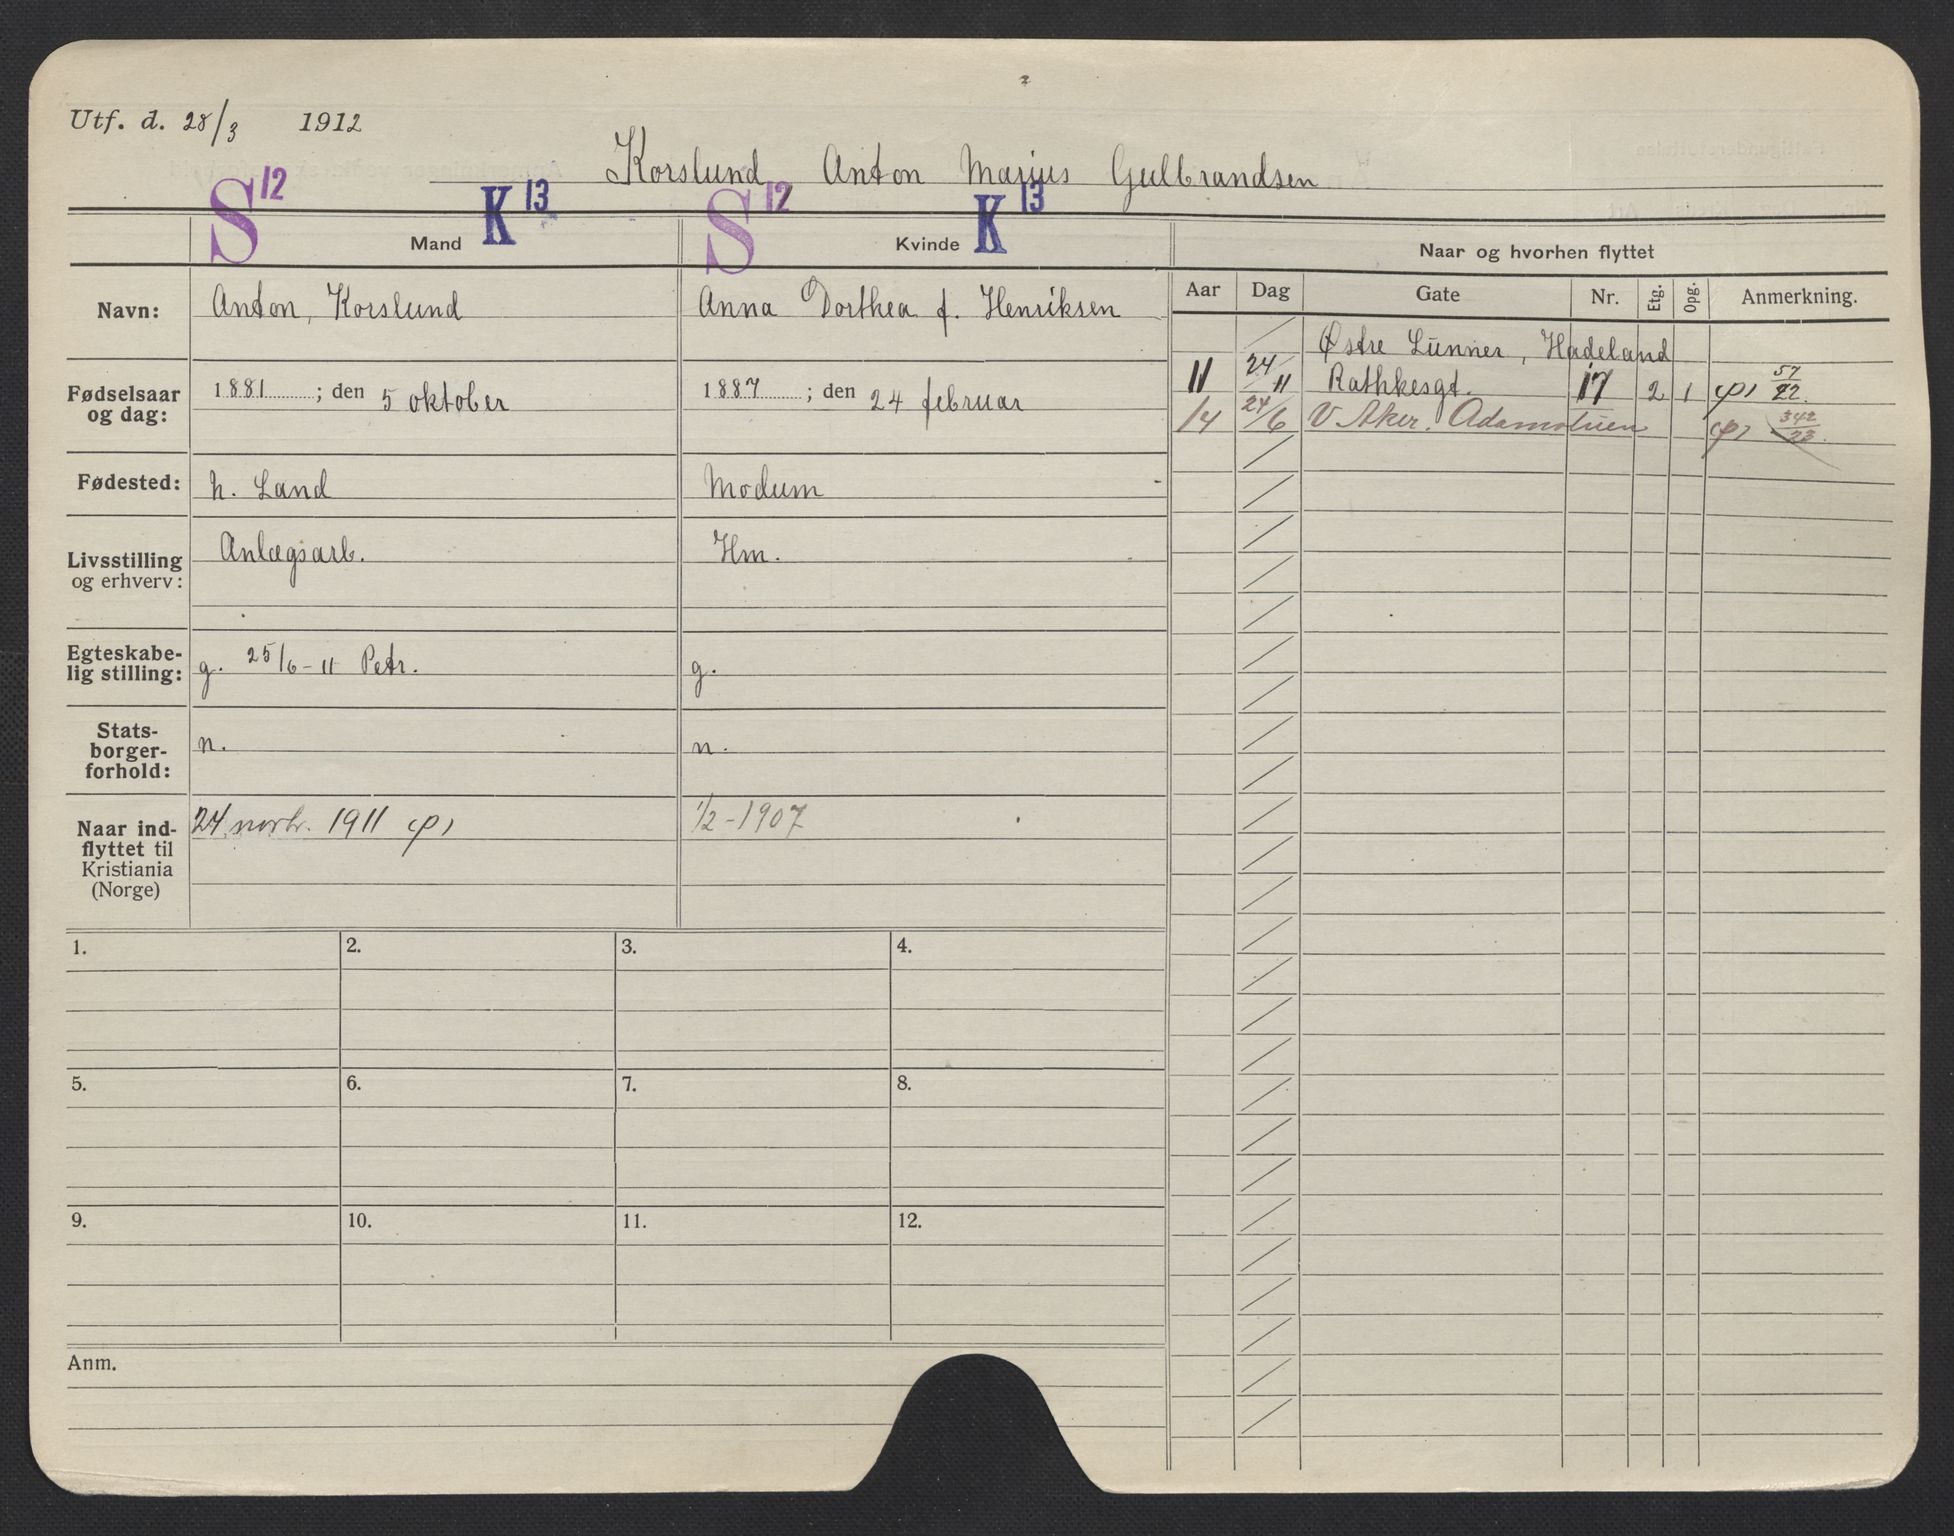 Utf. d. 28/3 1912
Korslund Anton Marius Gulbrandsen
S 12 K 13 S 12 K 13
Mand Kvinde Naar og hvorhen flyttet
Aar Dag Gate Nr. Etg. Opg. Anmerkning.
Navn: Anton, Korslund Anna Dorthea f. Henriksen
Østre Lunner, Hadeland
Fødselsaar og dag: 1881 ; den 5 oktober 1887 ; den 24 februar
11 24/11 Rathkesgt. 17 2 1 57/22.
14 24/6 V Aker. Adamstuen 342/23.
Fødested: n. Land Modum
Livsstilling og erhverv: Anlægsarb. Hm.
Egteskabe-
lig stilling: g. 25/6-11 Petr. g.
Stats-
borger-
forhold: n. n.
Naar ind-
flyttet til
Kristiania
(Norge) 24 novbr. 1911 1/2-1907
1. 2. 3. 4.
5. 6. 7. 8.
9. 10. 11. 12.
Anm.